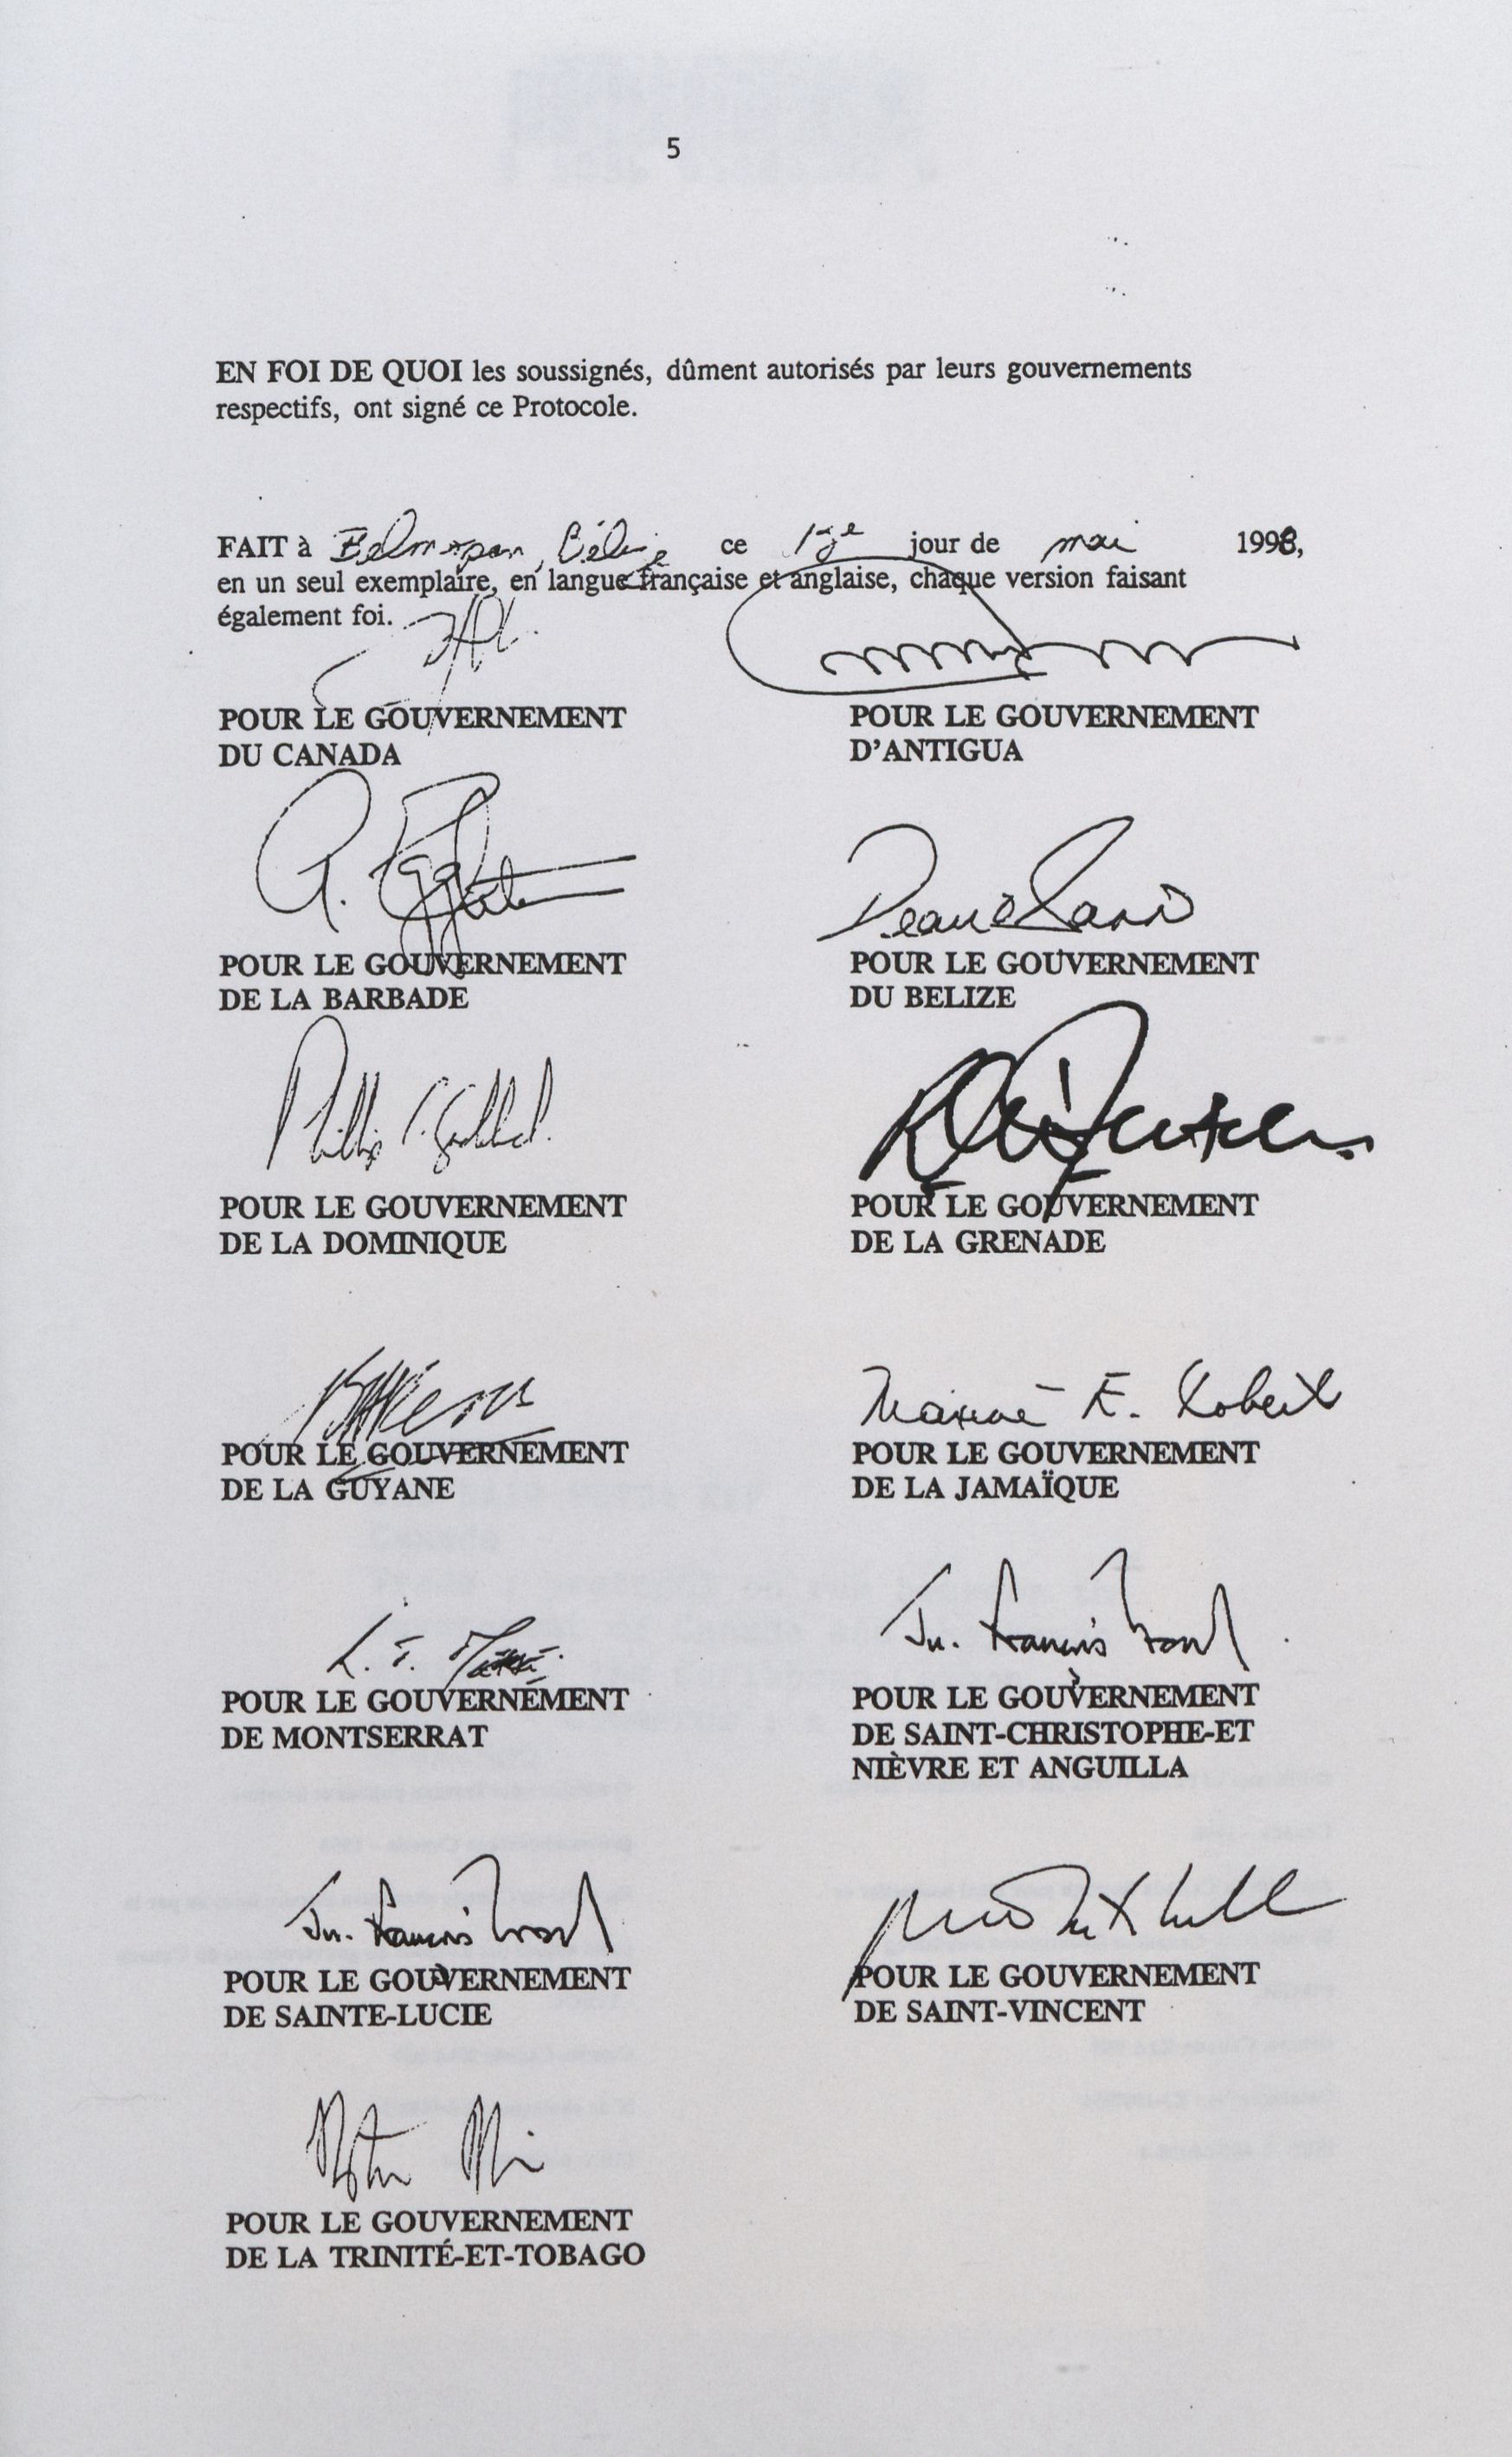 5
EN FOI DE QUOI les soussignés, dûment autorisés par leurs gouvernements
respectifs, ont signé ce Protocole.
FAIT à Belmopan, Bélize ce jour de mai 1998,
en un seul exemplaire, en langue française et anglaise, chaque version faisant
également foi.
POUR LE GOUVERNEMENT
DU CANADA
POUR LE GOUVERNEMENT
D'ANTIGUA
POUR LE GOUVERNEMENT
DE LA BARBADE
POUR LE GOUVERNEMENT
DU BELIZE
POUR LE GOUVERNEMENT
DE LA DOMINIQUE
POUR LE GOUVERNEMENT
DE LA GRENADE
POUR LE GOUVERNEMENT
DE LA GUYANE
Maxine E. Roberts
POUR LE GOUVERNEMENT
DE LA JAMAÏQUE
POUR LE GOUVERNEMENT
DE MONTSERRAT
POUR LE GOUVERNEMENT
DE SAINT-CHRISTOPHE-ET
NIÈVRE ET ANGUILLA
POUR LE GOUVERNEMENT
DE SAINTE-LUCIE
POUR LE GOUVERNEMENT
DE SAINT-VINCENT
POUR LE GOUVERNEMENT
DE LA TRINITÉ-ET-TOBAGO